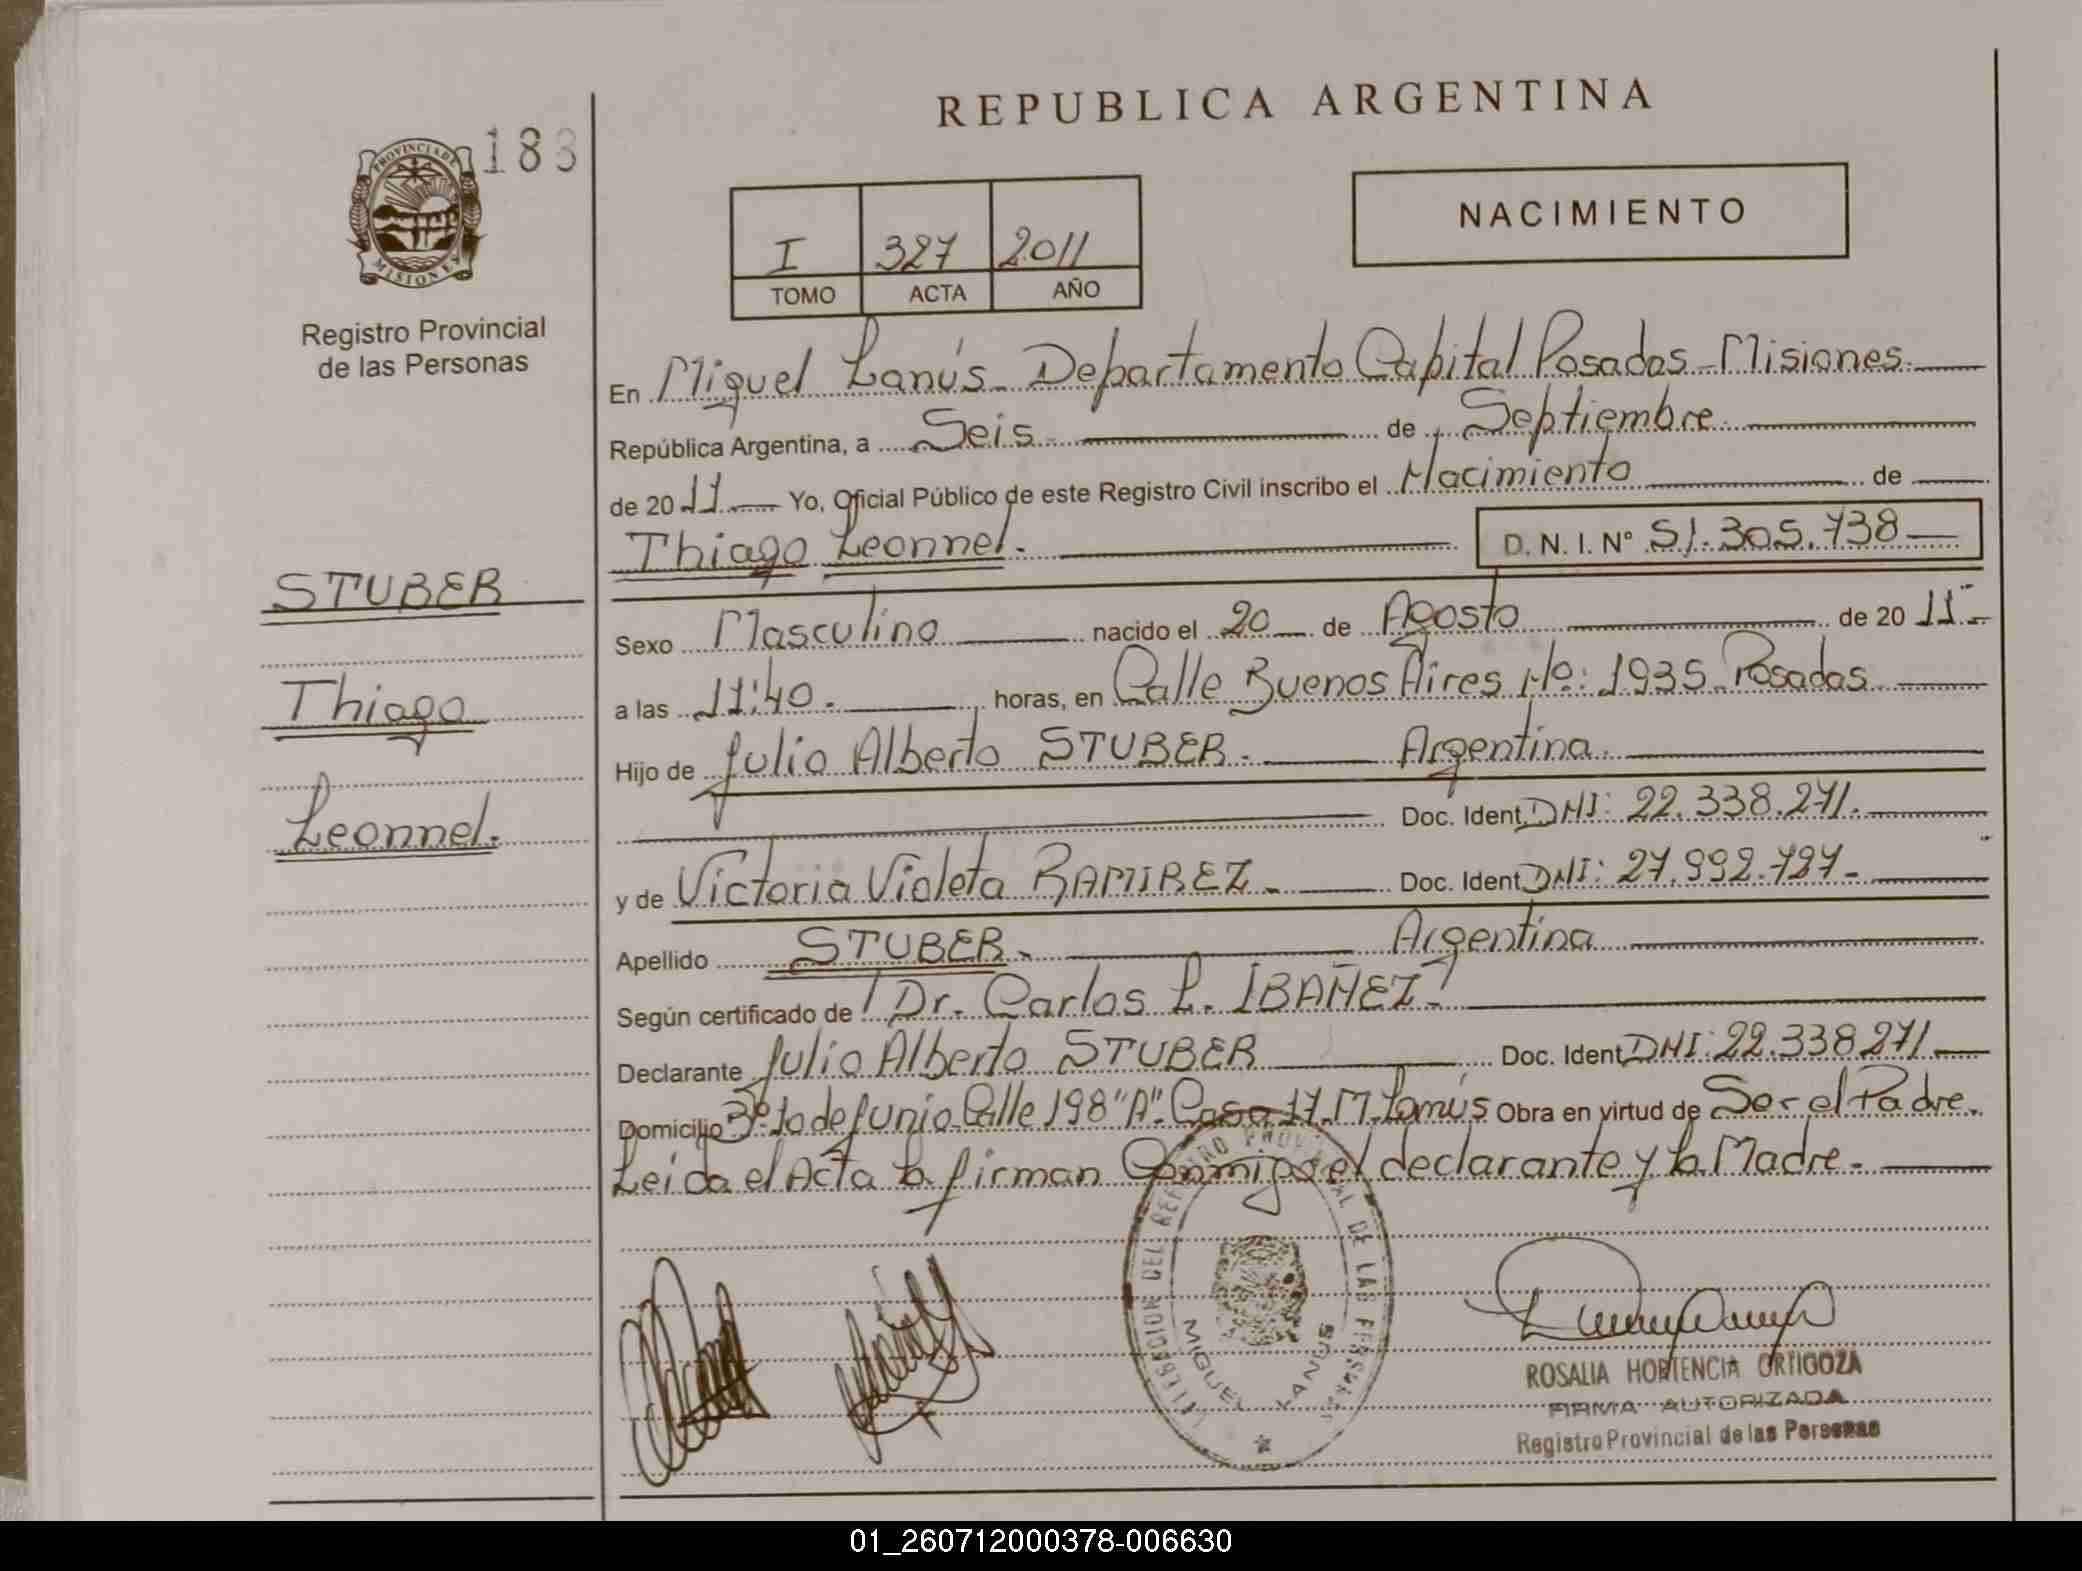 REPUBLICA ARGENTINA
183
PROVINCIA DE
MISIONES
Registro Provincial
de las Personas
NACIMIENTO
I 327 2011
TOMO ACTA AÑO
En Miguel Lanús - Departamento Capital Posadas - Misiones.
República Argentina, a Seis de Septiembre
de 20 11 Yo, Oficial Público de este Registro Civil inscribo el Nacimiento de
Thiago Leonnel. D. N. I. N° 51.305.738
STUBER
Thiago
Leonnel.
Sexo Masculino nacido el 20 de Agosto de 20 11
a las 11:40. horas, en Calle Buenos Aires Nº: 1935 - Posadas
Hijo de Julio Alberto STUBER. Argentina.
Doc. Ident. DNI: 22.338.271.
y de Victoria Violeta RAMIREZ - Doc. Ident DNI: 27.992.727 -
Apellido STUBER. Argentina
Según certificado de Dr. Carlos L. IBAÑEZ -
Declarante Julio Alberto STUBER Doc. Ident DNI: 22.338.271
Domicilio 3º: 10 de Junio Calle 198 "A". Casa 17. M. Lanús Obra en virtud de Ser el Padre.
Leída el Acta la firman Conmigo el declarante y la Madre -
DEL REGISTRO PROVINCIAL DE LAS PERSONAS
MIGUEL LANUS
ROSALIA HORTENCIA ORTIGOZA
FIRMA AUTORIZADA
Registro Provincial de las Personas
01_260712000378-006630